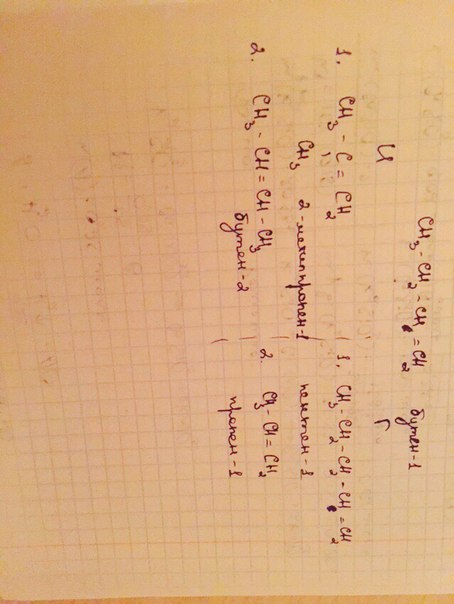 CH₃ - CH₂ - CH = CH₂ бутен-1
И
Г
1. CH₃ - C = CH₂
CH₃ 2-метилпропен-1
2. CH₃ - CH = CH - CH₃
бутен-2
1. CH₃ - CH₂ - CH₂ - CH = CH₂
пентен-1
2. CH₃ - CH = CH₂
пропен-1